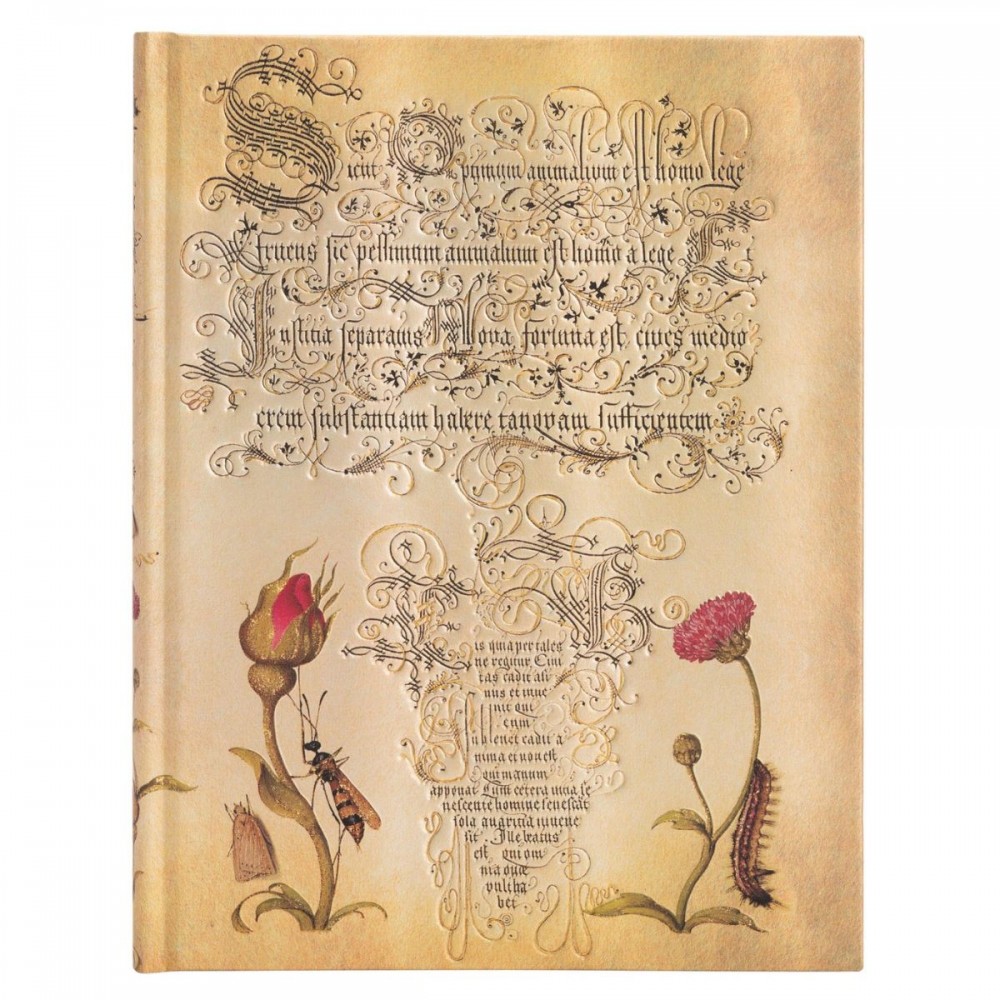 Sicut Optimum animalium est homo lege
fruens sic pessimum animalium est homo a lege Et
Iustitia separatus Nova fortuna est cives medio
crem substantiam habere tanqvam sufficientem
is quia per tales
ne regitur. Civi
tas cadit asi
nus et inve
nit qui
eum
sublevet cadit a
nima et non est
qui manum
apponat Cum cetera vitia se
nescente homine senescāt
sola avaritia iuvene
sit. Ille beatus
est qui om
nia quae
vult ha
bet.